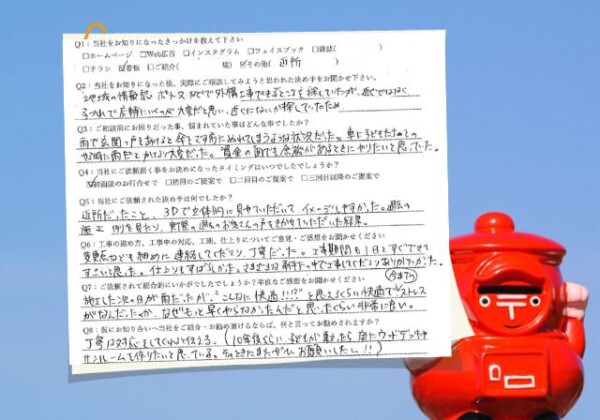 Q1：当社をお知りになったきっかけを教えて下さい
□ホームページ □Web広告 □インスタグラム □フェイスブック □雑誌( )
□チラシ ☑看板 □ご紹介( 様) ☑その他( 近所 )
Q2：当社をお知りになった後、実際にご相談してみようと思われた決め手をお聞かせ下さい。
地域の情報誌 ポスト などで外構工事できるところを探していたが、近くではなく
子づれで店舗にいくのが大変だと思い、近くにないか探していたため
Q3：ご相談前にお困りだった事、悩まれていた事はどんな事でしたか？
雨で玄関の戸をあけると傘をさす前にぬれてしまうような状況だった。車に子どもたちをの
せる時に雨だとかけより大変だった。資金の面でも余裕があるときにやりたいと思っていた。
Q4：当社にご依頼頂く事をお決めになったタイミングはいつでしたでしょうか？
☑初回面談のお打合せで □初回のご提案で □二回目のご提案で □三回目以降のご提案で
Q5：当社にご依頼された決め手は何でしたか？
近所だったこと。3Dで立体的に見せていただいてイメージしやすかった。過去の
施工例を見たり、実際の お客さんの声をきかせていただいた結果。
Q6：工事の進め方、工事中の対応、工期、仕上りについてご意見・ご感想をお聞かせください
変更点なども細めに連絡してくださり、丁寧だった。工事期間も1日とすぐできて
すごいと思った。仕上りもすばらしかった。さまざまな 条件の中で工事してくださりありがたかった。
Q7：ご依頼されて総合的にいかがでしたでしょうか？率直なご感想をお聞かせください
今まで
施工した次の日が雨だったが、"こんなに快適!!?"と思えるくらい快適でストレス
がなんだったのか、なぜもっと早くやらなかったんだと思ったくらい非常に良い。
Q8：仮にお知り合いへ当社をご紹介・お勧め頂けるならば、何と言ってお勧めされますか？
丁寧な対応をしてくれると伝える。(10年後くらい 子どもが巣立ったら 庭にウッドデッキや
サンルームを作りたいと思っている。そのときにまたぜひお願いしたい!!)